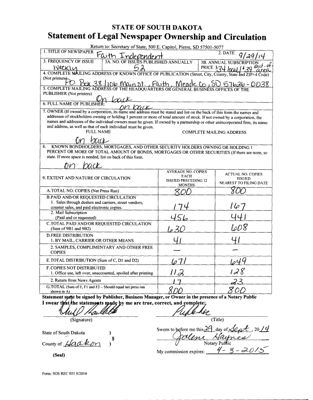 STATE OF SOUTH DAKOTA
Statement of Legal Newspaper Ownership and Circulation
Return to: Secretary of State, 500 E. Capitol, Pierre, SD 57501-5077
1. TITLE OF NEWSPAPER Faith Independent 2. DATE 9/29/14
3. FREQUENCY OF ISSUE Weekly 3A. NO. OF ISSUES PUBLISHED ANNUALLY 52 3B. ANNUAL SUBSCRIPTION PRICE
4. COMPLETE MAILING ADDRESS OF KNOWN OFFICE OF PUBLICATION (Street, City, County, State and ZIP+4 Code)
(Not printers) PO Box 38, Main St. Faith Meade Co, SD 57626-0038
5. COMPLETE MAILING ADDRESS OF THE HEADQUARTERS OR GENERAL BUSINESS OFFICES OF THE
PUBLISHER (Not printers) on back
6. FULL NAME OF PUBLISHER: on back
7. OWNER (If owned by a corporation, its name and address must be stated and list on the back of this form the names and
addresses of stockholders owning or holding 1 percent or more of total amount of stock. If not owned by a corporation, the
names and addresses of the individual owners must be given. If owned by a partnership or other unincorporated firm, its name
and address, as well as that of each individual must be given.
FULL NAME COMPLETE MAILING ADDRESS
on back
8. KNOWN BONDHOLDERS, MORTGAGEES, AND OTHER SECURITY HOLDERS OWNING OR HOLDING 1
PERCENT OR MORE OF TOTAL AMOUNT OF BONDS, MORTGAGES OR OTHER SECURITIES (If there are none, so
state. If more space is needed, list on back of this form.
on back
9. EXTENT AND NATURE OF CIRCULATION AVERAGE NO. COPIES EACH ISSUED PRECEDING 12 MONTHS ACTUAL NO. COPIES ISSUED NEAREST TO FILING DATE
A. TOTAL NO. COPIES (Net Press Run) 800 800
B. PAID AND/OR REQUESTED CIRCULATION
1. Sales through dealers and carriers, street vendors,
counter sales, and paid electronic copies. 174 167
2. Mail Subscriptions
(Paid and or requested) 456 441
C. TOTAL PAID AND/OR REQUESTED CIRCULATION
(Sum of 9B1 and 9B2) 630 608
D. FREE DISTRIBUTION
1. BY MAIL, CARRIER OR OTHER MEANS 41 41
2. SAMPLES, COMPLIMENTARY AND OTHER FREE
COPIES — —
E. TOTAL DISTRIBUTION (Sum of C, D1 and D2) 671 649
F. COPIES NOT DISTRIBUTED
1. Office use, left over, unaccounted, spoiled after printing 112 128
2. Return from News Agents 17 23
G. TOTAL (Sum of E, F1 and F2 – Should equal net press run
shown in A) 800 800
Statement must be signed by Publisher, Business Manager, or Owner in the presence of a Notary Public
I swear that the statements made by me are true, correct, and complete:
Publisher
(Signature) (Title)
State of South Dakota )
§
County of Haakon )
Sworn to before me this 29 day of Sept, 2014
Jolene Haynes
Notary Public
(Seal) My commission expires: 4-3-2015
Form: SOS REC 051 9/2014